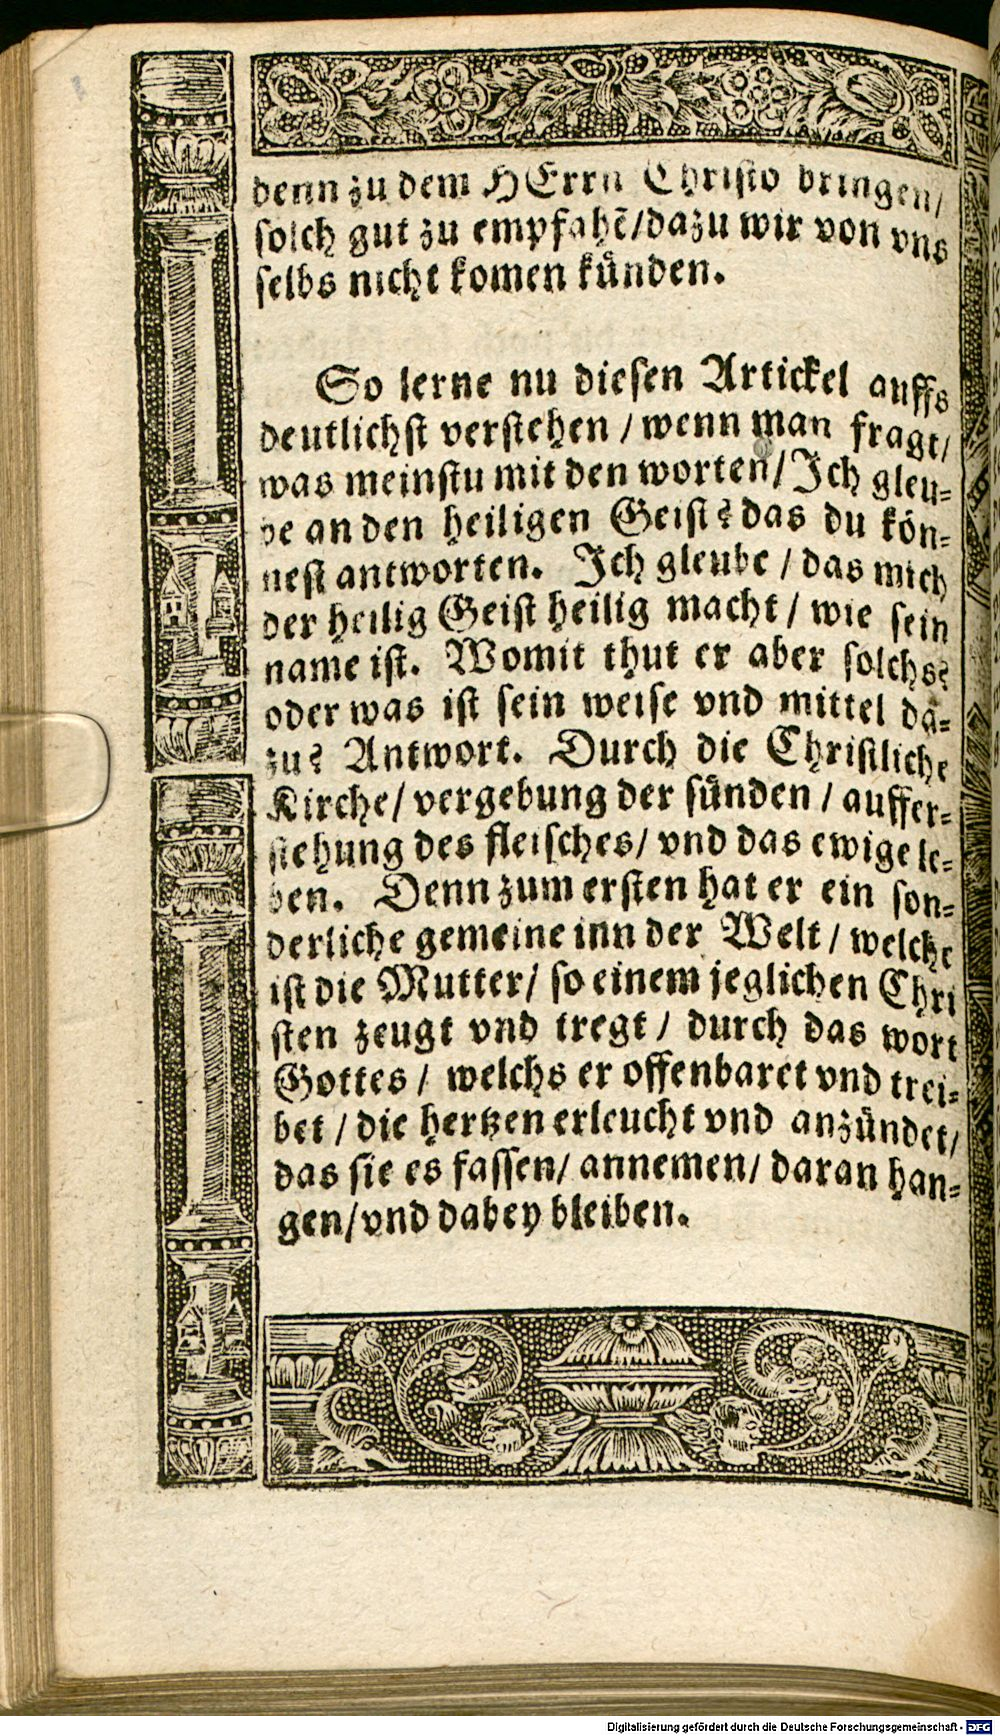 denn zu dem HErrn Christo bringen/
solch gut zu empfahẽ/dazu wir von vns
selbs nicht komen künden.
So lerne nu diesen Artickel auffs
deutlichst verstehen / wenn man fragt/
was meinstu mit den worten/ Ich gleu-
be an den heiligen Geist? das du kön-
nest antworten. Ich gleube / das mich
der heilig Geist heilig macht / wie sein
name ist. Womit thut er aber solchs?
oder was ist sein weise vnd mittel da-
zu? Antwort. Durch die Christliche
Kirche/ vergebung der sünden / auffer-
stehung des fleisches/ vnd das ewige le-
ben. Denn zum ersten hat er ein son-
derliche gemeine inn der Welt / welche
ist die Mutter/ so einem jeglichen Chri
sten zeugt vnd tregt / durch das wort
Gottes / welchs er offenbaret vnd trei-
bet / die hertzen erleucht vnd anzündet/
das sie es fassen/ annemen/ daran han-
gen/vnd dabey bleiben.
Digitalisierung gefördert durch die Deutsche Forschungsgemeinschaft - DFG